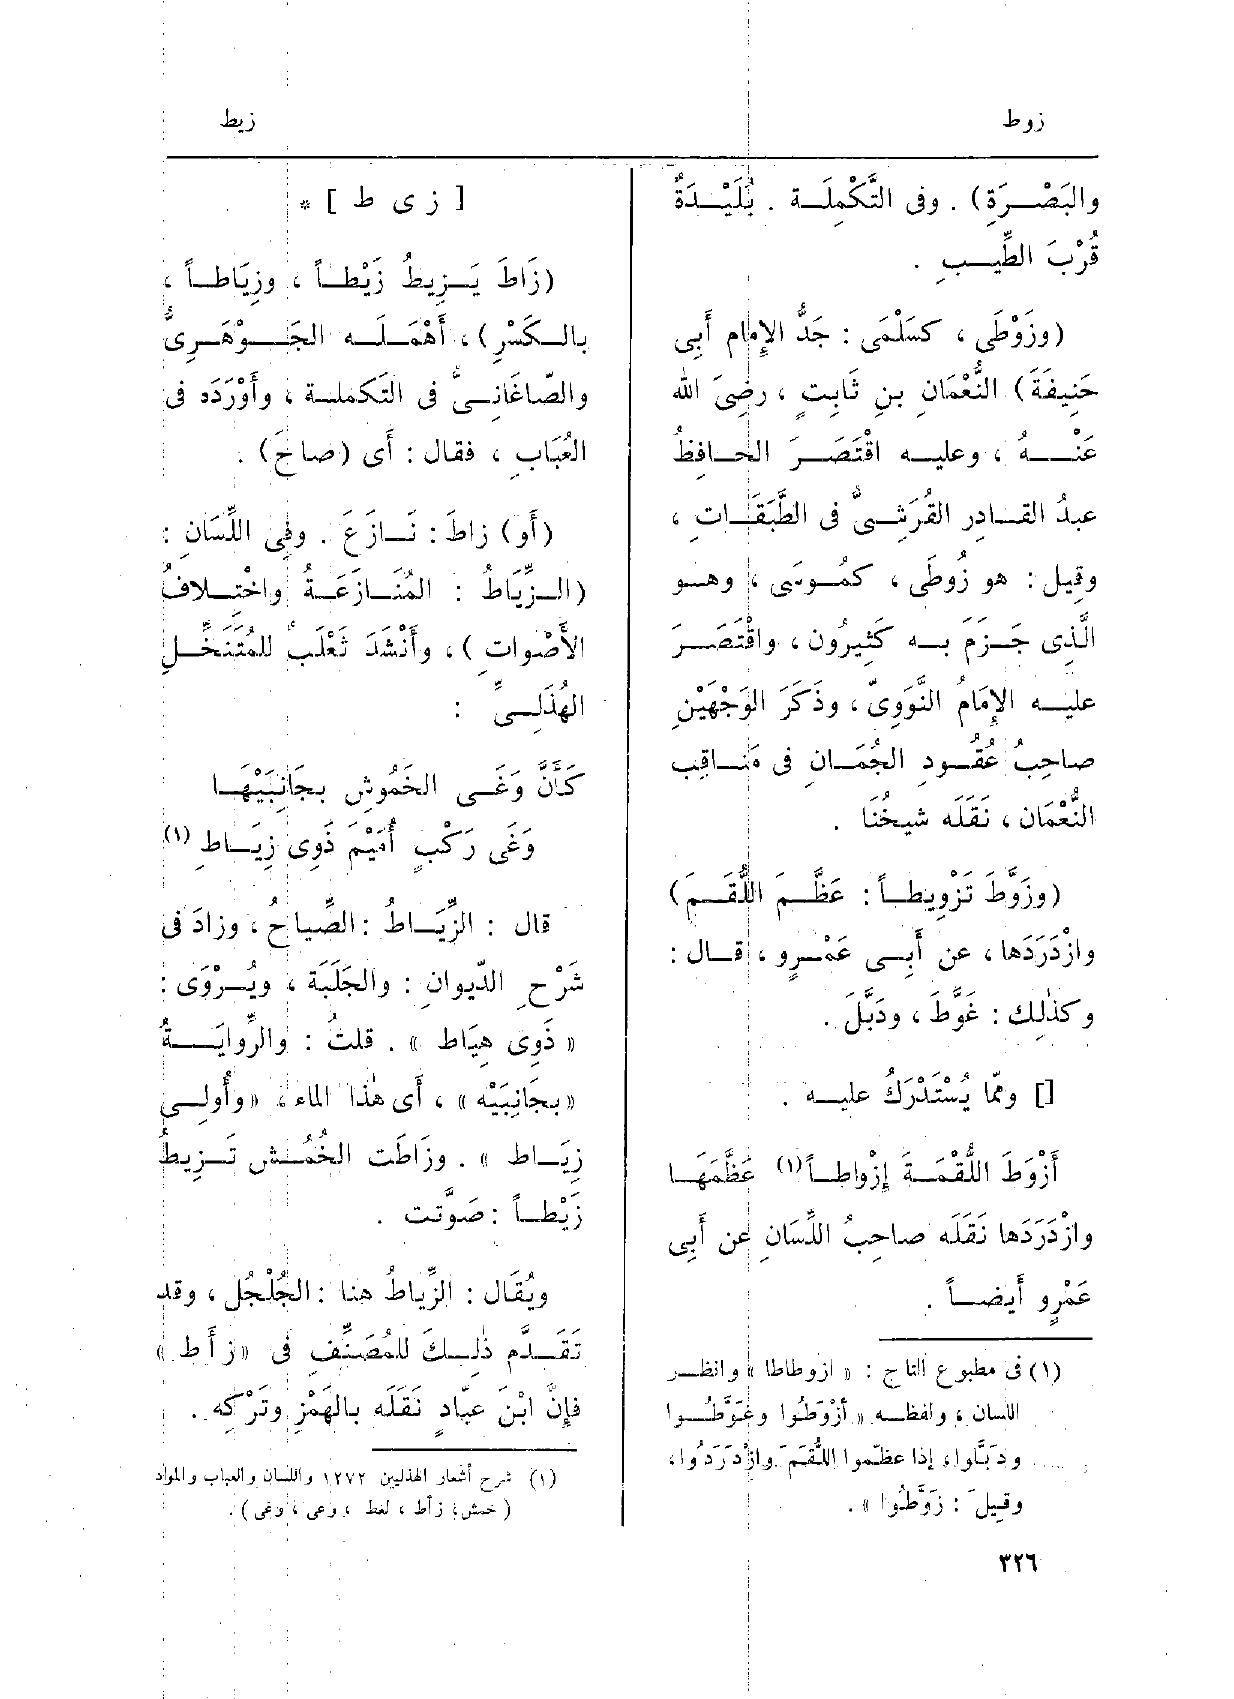 زوط
زيط
والبَصْـرَةِ) . وفى التَّكْمِلَـة . بُلَيْـدَةٌ
قُرْبَ الطِّيـبِ .
(وزَوْطَى ، كسَلْمَى : جَدُّ الإِمام أَبى
حَنِيفَةَ) النُّعْمَانِ بنِ ثَابِتٍ ، رضِىَ الله
عَنْـهُ ، وعليـه اقْتَصَـرَ الحـافِظُ
عبدُ القـادِر القُرَشِـىُّ فى الطَّبَقَـاتِ ،
وقِيل : هو زُوطَى ، كمُـوسَى ، وهـو
الَّذِى جَـزَم بـه كَثِيرُون ، واقْتَصَـرَ
عليـه الإِمَامُ النَّوَوِىّ ، وذَكَرَ الوَجْهَيْنِ
صاحِبُ عُقُـودِ الجُمَـانِ فى مَنَـاقِبِ
النُّعْمَان ، نَقَلَه شيخُنَا .
(وزَوَّطَ تَزْوِيطـاً : عَظَّـمَ اللُّقَـمَ)
وازْدَرَدَها ، عن أَبِـى عَمْـرٍو ، قـال :
وكذٰلِك : غَوَّطَ ، ودَبَّلَ .
[] وممّا يُسْتَدْرَكُ عليـه .
أَزْوَطَ اللُّقْمَـةَ إِزْواطـاً(١) عَظَّمَهَـا
وازْدَرَدَها نَقَلَه صاحِبُ اللِّسَانِ عن أَبِى
عَمْرٍو أَيضـاً .
(١) فى مطبوع التاج : « ازوطاطا » وانظـر
اللسان ، ولفظـه « أَزْوَطُوا وغَوَّطُـوا
ودَبَّلوا، إذا عظّموا اللُّقَمَ وازْدَرَدُوا،
وقيلَ : زَوَّطُوا » .
[ ز ى ط ] *
(زَاطَ يَـزِيطُ زَيْطـاً ، وزِيَاطـاً ،
بالـكَسْرِ) ، أَهْمَـلَـه الجَـوْهَـرِىُّ
والصّاغَانِـىُّ فى التَكملـة ، وأَوْرَدَه فى
العُبَابِ ، فقال : أَى (صاحَ) .
(أَو) زاطَ : نَـازَعَ . وفى اللِّسَان :
(الـزِّيَاطُ : المُنَـازَعَـةُ واخْتِـلافُ
الأَصْواتِ) ، وأَنْشَدَ ثَعْلَبٌ للمُتَنَخِّـلِ
الهُذَلِـىِّ :
كَأَنَّ وَغَـى الخَمُوشِ بجَانِبَيْهَـا
وَغَى رَكْبٍ أُمَيْمَ ذَوِى زِيَـاطِ (١)
قال : الزِّيَـاطُ : الصِّياحُ ، وزادَ فى
شَرْحِ الدّيوانِ : والجَلَبَة ، ويُـرْوَى :
« ذَوِى هِيَاط » . قلتُ : والرِّوايَـةُ
« بجَانِبَيْه » ، أَى هٰذا الماء ، « وأُولِـى
زِيَـاط » . وزَاطَت الخُمُـش تَـزِيطُ
زَيْطـاً : صَوَّتت .
ويُقَال : الزِّياطُ هنا : الجُلْجُل ، وقد
تَقَـدَّم ذٰلِـكَ للمُصَنِّف فى « ز أَ ط »
فإِنَّ ابْنَ عبّادٍ نَقَلَه بالهَمْزِ وتَرْكِه .
(١) شرح أشعار الهذليين ١٢٧٢ واللسان والعباب والمواد
(خمش، زأط ، لغط ، وعى ، وغى) .
٣٢٦